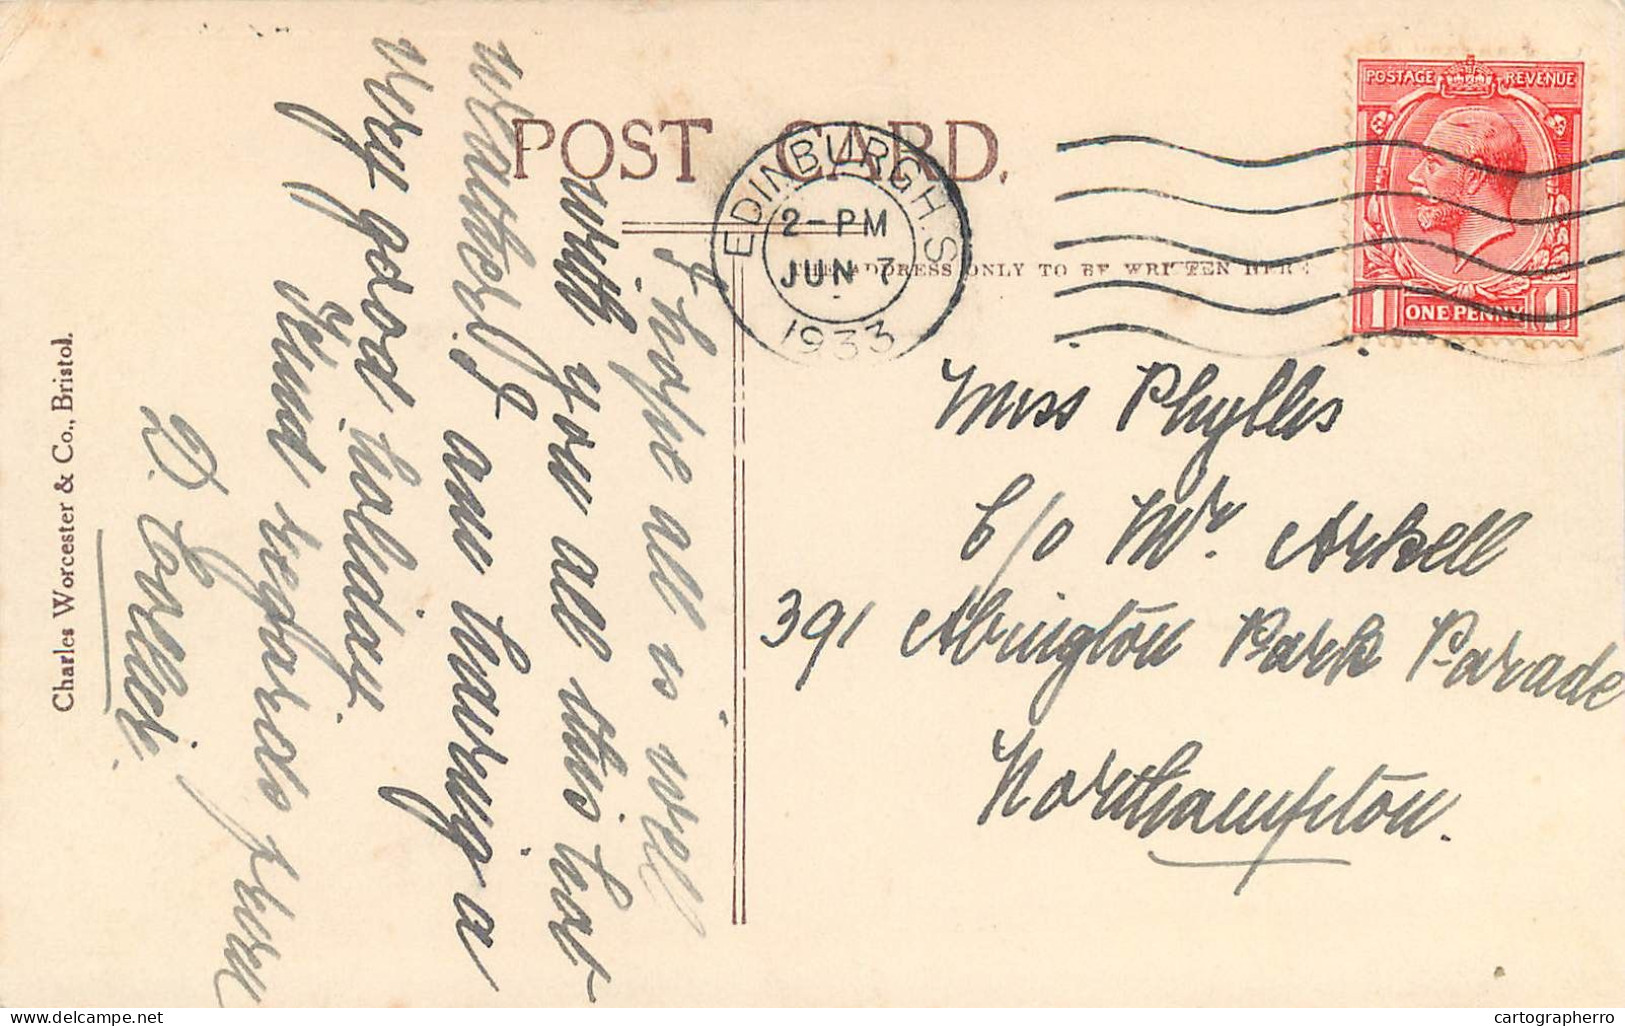 POST CARD.
THE ADDRESS ONLY TO BE WRITTEN HERE
EDINBURGH. S
2-PM
JUN 7
1933
POSTAGE REVENUE
1 ONE PENNY 1
Miss Phyllis
C/o Mr. Arkell
391 Abington Park Parade
Northampton.
I hope all is well
with you all this hot
weather. I am having a
very good holiday.
Kind regards from
D. Corlley.
Charles Worcester & Co., Bristol.
delcampe.net
cartographerro